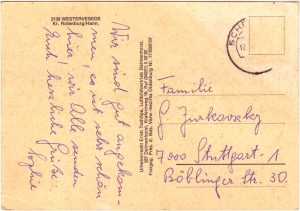 2139 WESTERVESEDE
Kr. Rotenburg/Hann.
Wir sind gut angekom-
men, es ist sehr schön
hier, wir Alle senden
Euch herzliche Grüße.
SCHE
12.
Familie
G. Zurkavsky
7000 Stuttgart-1
Böblinger Str. 30